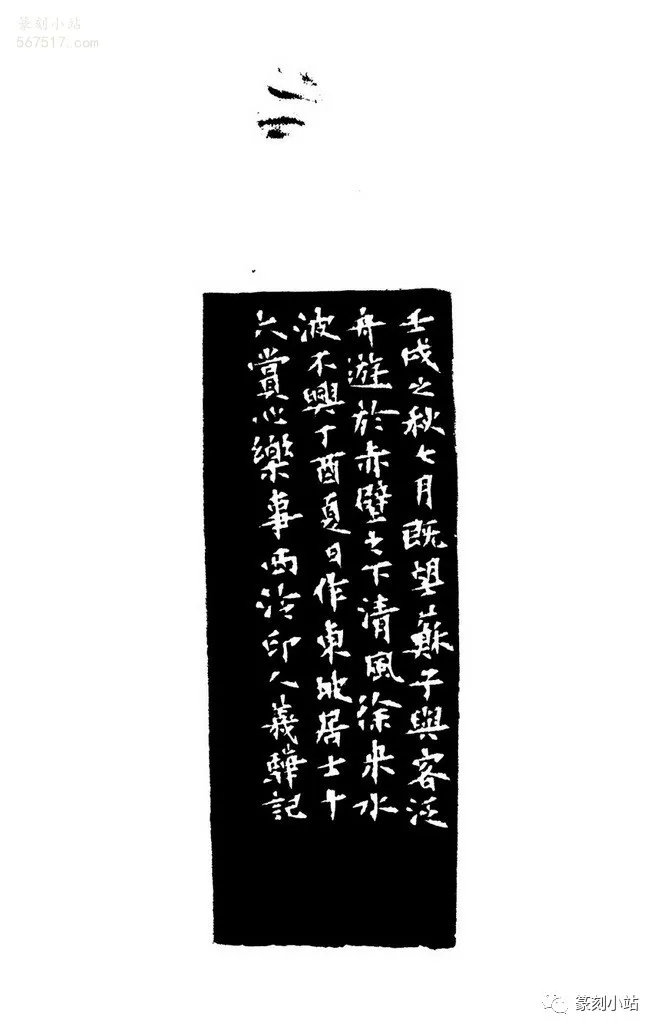 篆刻小站
567517.com
壬戌之秋七月既望蘇子與客泛
舟遊於赤壁之下清風徐来水
波不興丁酉夏日作東坡居士十
六賞心樂事西泠印人義驊記
篆刻小站